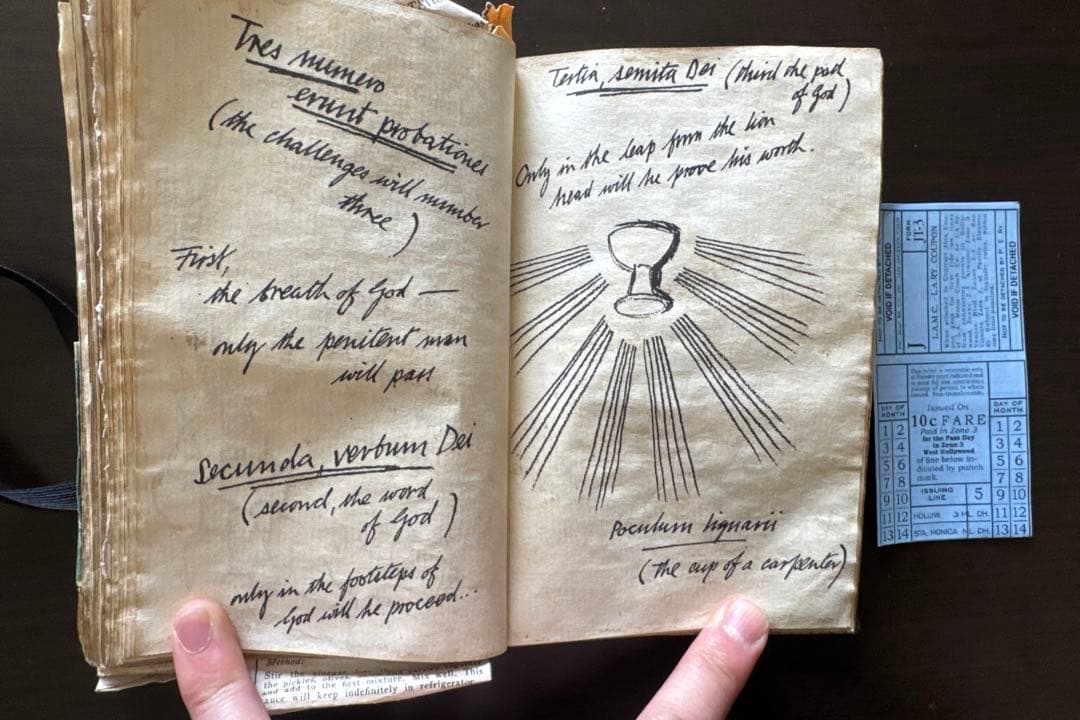 Tres numero
erunt probationes
(the challenges will number
three)
First,
the breath of God —
only the penitent man
will pass
Secunda, verbum Dei
(second, the word
of God)
only in the footsteps of
God will he proceed...
Method:
and add to the first mixture. Mix well. This
will keep indefinitely in refrigerator
Tertia, semita Dei (third the path
of God)
Only in the leap from the lion
head will he prove his worth.
Poculum lignarii
(the cup of a carpenter)
VOID IF DETACHED
FORM
JT-3
J
L.A.M.C. L.A. RY. COUPON
NOT TO BE DETACHED BY P. E. Ry
VOID IF DETACHED
DAY OF
MONTH
1 2
3 4
5 6
7 8
9 10
11 12
13 14
Issued On
10c FARE
Paid in Zone 3
for the Pass Day
in Zone 3
West Hollywood
of line below in-
dicated by punch
mark.
ISSUING
LINE
5
HOLLYW.
STA. MONICA
DAY OF
MONTH
1 2
3 4
5 6
7 8
9 10
11 12
13 14